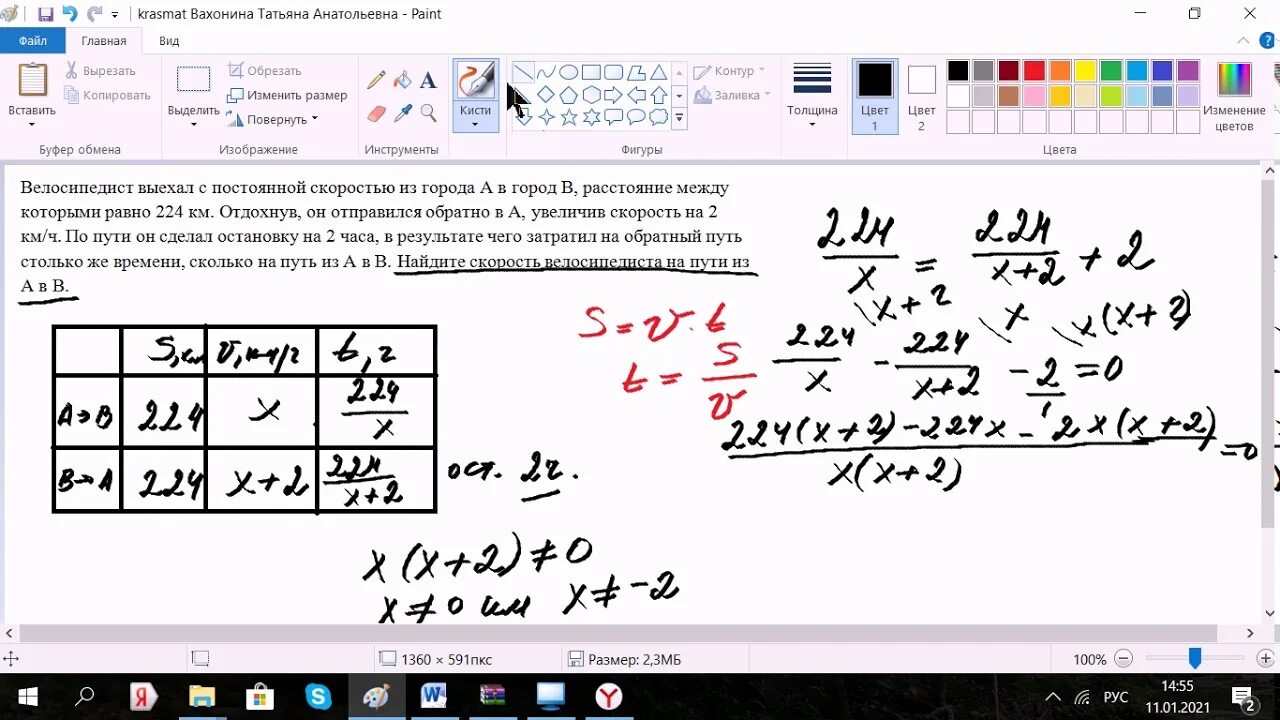 krasmat Вахонина Татьяна Анатольевна - Paint
Файл
Главная
Вид
Вставить
Вырезать
Копировать
Буфер обмена
Выделить
Обрезать
Изменить размер
Повернуть
Изображение
A
Инструменты
Кисти
Контур
Заливка
Фигуры
Толщина
Цвет
1
Цвет
2
Изменение
цветов
Цвета
Велосипедист выехал с постоянной скоростью из города А в город В, расстояние между
которыми равно 224 км. Отдохнув, он отправился обратно в А, увеличив скорость на 2
км/ч. По пути он сделал остановку на 2 часа, в результате чего затратил на обратный путь
столько же времени, сколько на путь из А в В. Найдите скорость велосипедиста на пути из
А в В.
S, км v, км/ч t, ч
A→B 224 x 224/x
B→A 224 x+2 224/(x+2)
ост. 2ч.
S = v · t
t = S/v
224/x = 224/(x+2) + 2
\x+2 \x \x(x+2)
224/x - 224/(x+2) - 2/1 = 0
(224(x+2) - 224x - 2x(x+2))/(x(x+2)) = 0
x(x+2) ≠ 0
x ≠ 0 или x ≠ -2
1360 × 591пкс
Размер: 2,3МБ
100%
РУС
14:55
11.01.2021
2